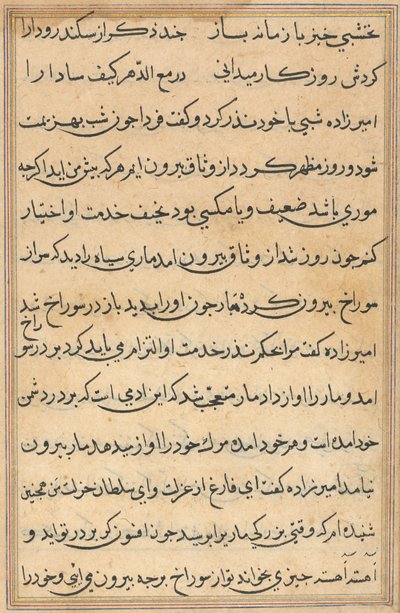 نخشبی خیز با زمانه بساز چند ذکر از سکندر و دارا
کردش روزکار میدانی در مع الدهر کیف ما دارا
امیرزاده شبی با خود نذر کرد و کفت فردا جون شب بهزیمت
شود و روز مظهر کردد از وثاق برون ایم هر که پیش من اید اکرچه
موری باشد ضعیف و یا مکسی بود نحیف خدمت او اختیار
کنم جون روز شد از وثاق بیرون امد ماری سیاه را دید که سر از
سوراخ بیرون کرده مار جون او را بدید باز در سوراخ شد
امیرزاده کفت مرا بحکم نذر خدمت او التزام می باید کرد بر در سوراخ
امد و مار را اواز داد مار متعجب شد که این ادمی است که بر در دشمن
خود امده است و هم خود امده مرک خود را اواز میدهد مار بیرون
نیامد امیرزاده کفت ای فارغ از عزلت و ای سلطان من همچنین
شنیده ام که وقتی بزرکی مار را پرسید جون افسون کر بر در تو اید و
آهسته آهسته چیزی بخواند تو از سوراخ برچه بیرون می ایی و خود را